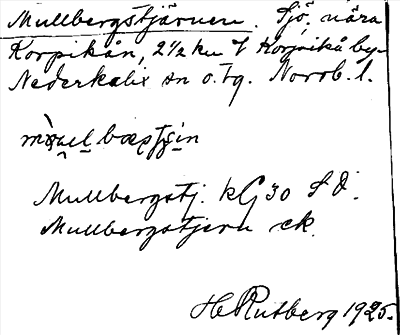 Mullbergstjärnen. Sjö, nära
Korpikån, 2½ km f Korpikå by.
Nederkalix sn o. tg. Norrb. l.
Mullbergstj. kG 30 SO.
Mullbergstjern ek.
H Rutberg 1925.